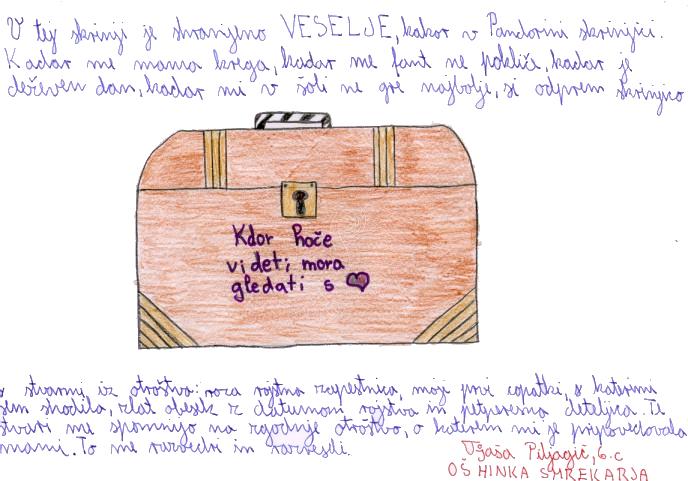 V tej skrinji je shranjeno VESELJE, kakor v Pandorini skrinjici.
Kadar me mama krega, kadar me fant ne pokliče, kadar je
deževen dan, kadar mi v šoli ne gre najbolje, si odprem skrinjico
Kdor hoče
videti, mora
gledati s ❤
s stvarmi iz otroštva: roza rojstna zapestnica, moji prvi copatki, s katerimi
sem shodila, zlat obesek z datumom rojstva in petperesna deteljica. Te
stvari me spomnijo na zgodnje otroštvo, o katerem mi je pripovedovala
mami. To me razvedri in razveseli.
Tjaša Piljagić, 6.c
OŠ HINKA SMREKARJA